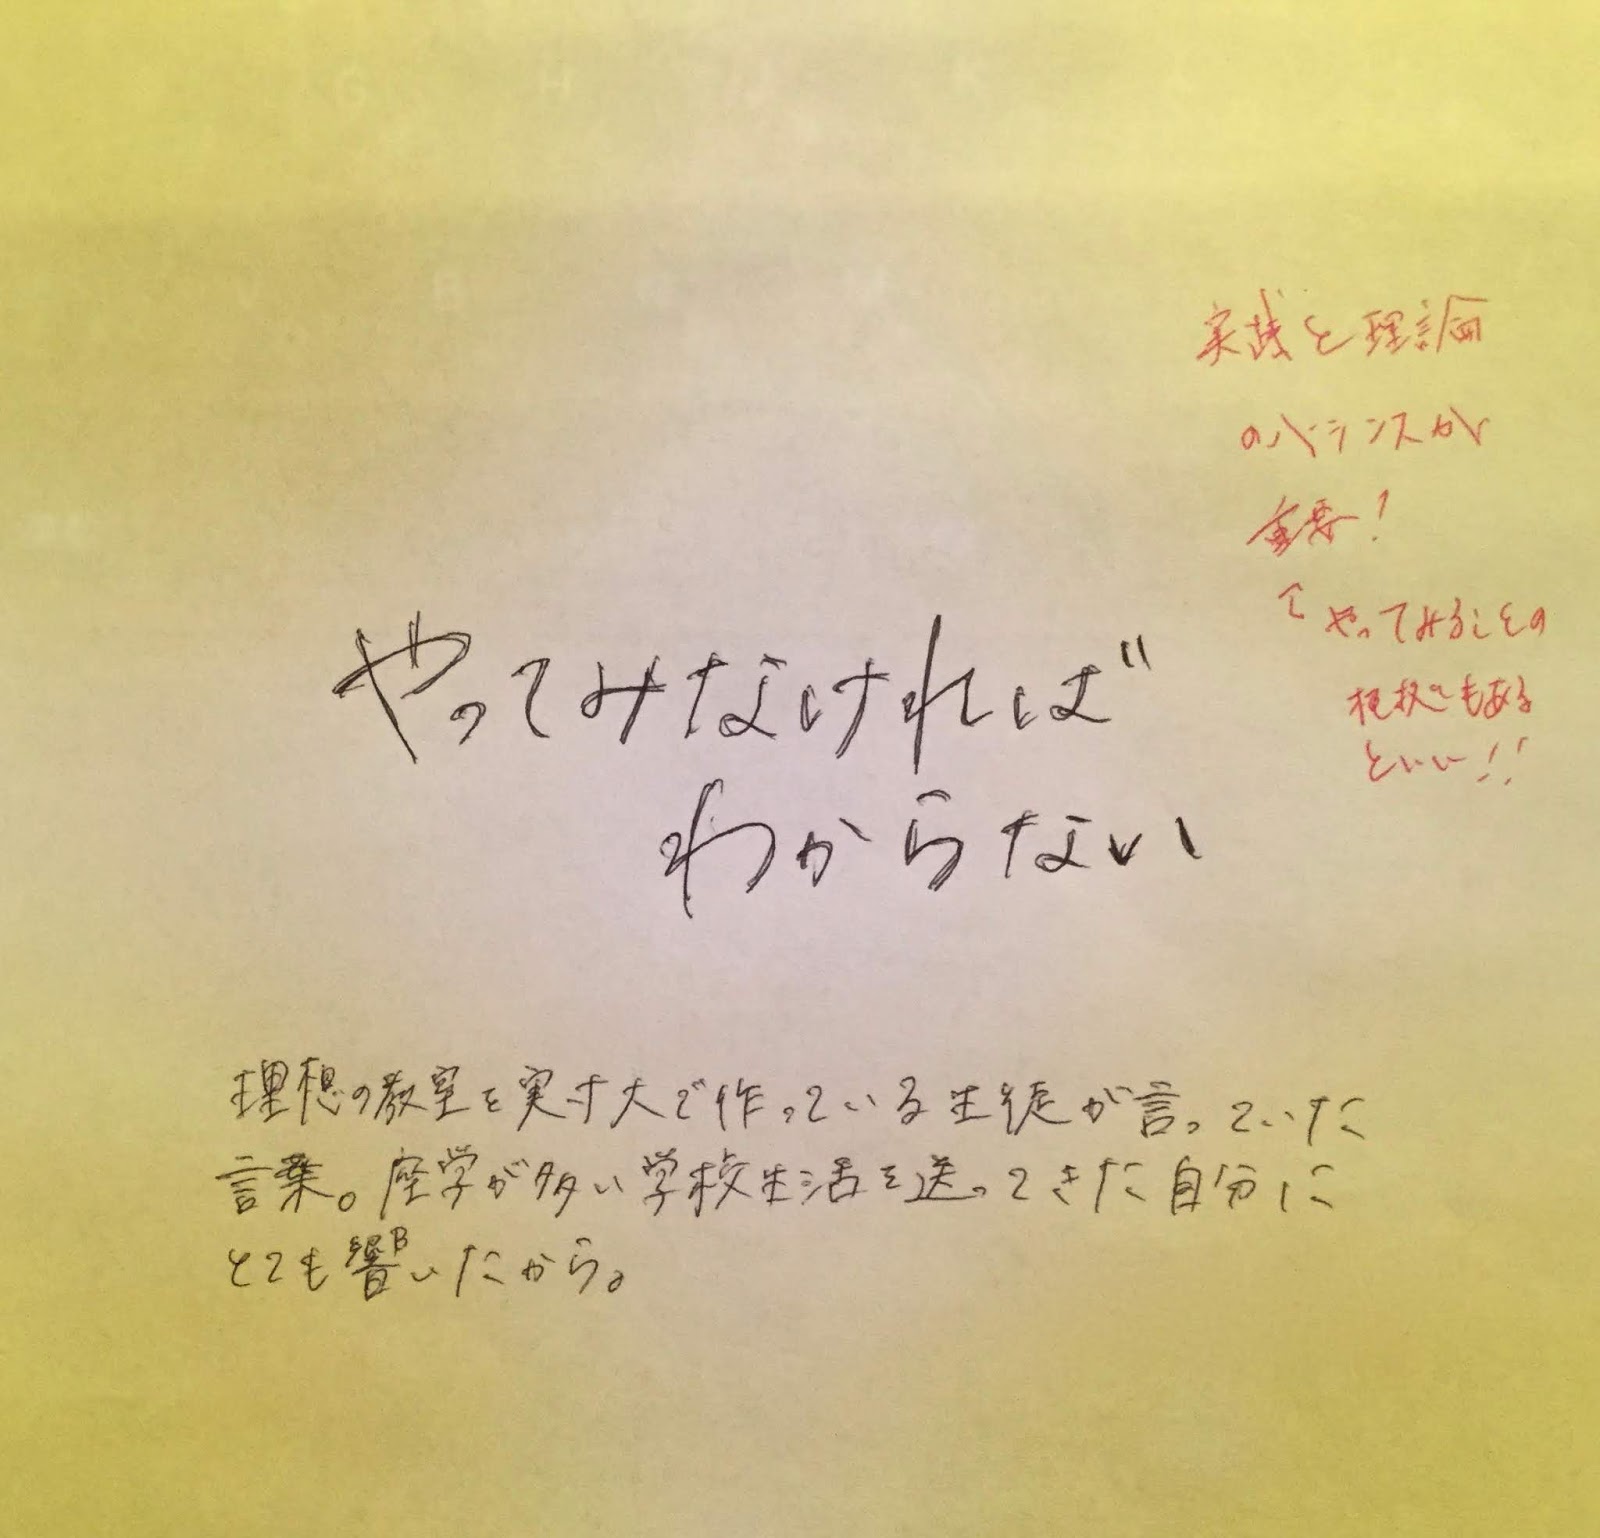 実践と理論
のバランスが
重要!
↑ やってみることの
根拠もある
といい!!
やってみなければ
わからない
理想の教室を実寸大で作っている生徒が言っていた
言葉。座学が多い学校生活を送ってきた自分に
とても響いたから。